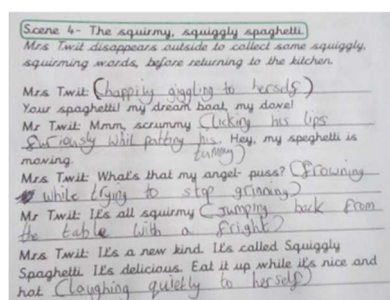 Scene 4- The squirmy, squiggly spaghetti
Mrs Twit disappears outside to collect some squiggly,
squirming words, before returning to the kitchen.
Mrs Twit: (happily giggling to herself)
Your spaghetti! my dream boat, my dove!
Mr Twit: Mmm, scrummy (licking his lips
furiously whil patting his. Hey, my speghetti is
tummy)
moving.
Mrs Twit: What's that my angel-puss? (frowning
while trying to stop grinning)
Mr Twit: It's all squirmy (Jumping back from
the table with a fright)
Mrs Twit: It's a new kind. It's called Squiggly
Spaghetti. It's delicious. Eat it up while it's nice and
hot (laughing quietly to herself)